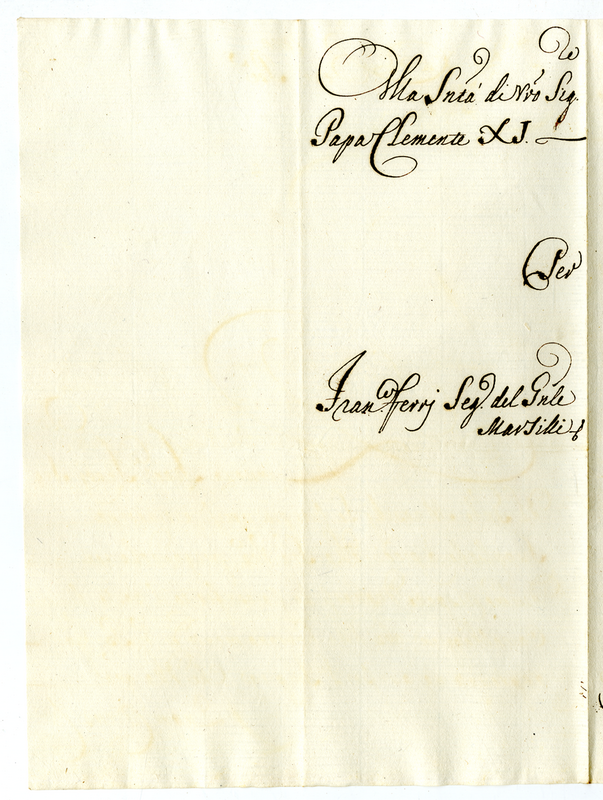 Alla Sntà di Nro Sigre
Papa Clemente XI.
Per
Franco Ferrj Seg. del Gnle
Marsilli